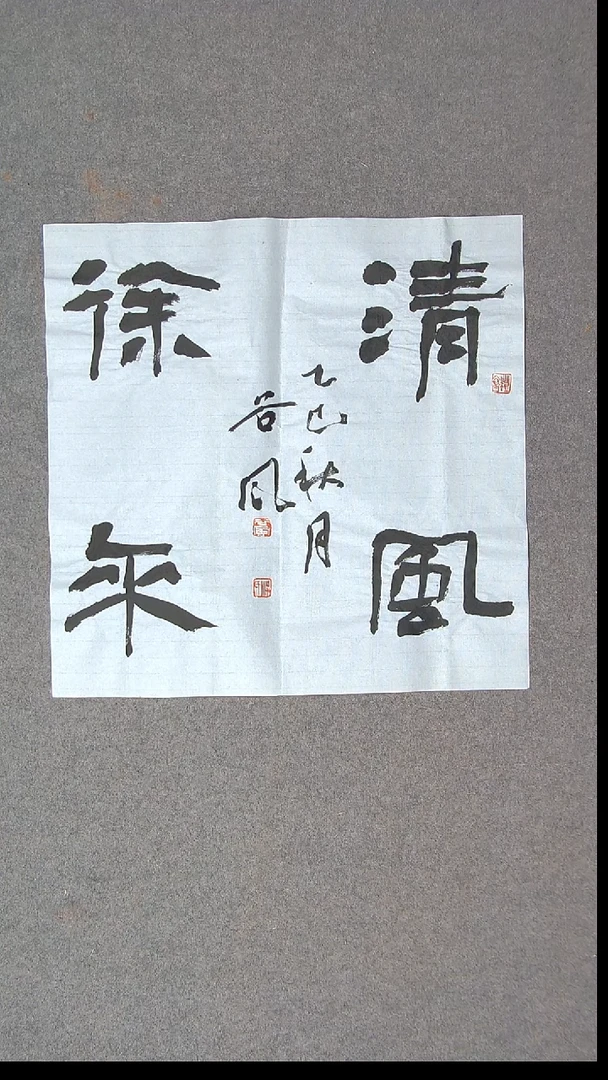 清風
乙巳秋月
谷风
徐来